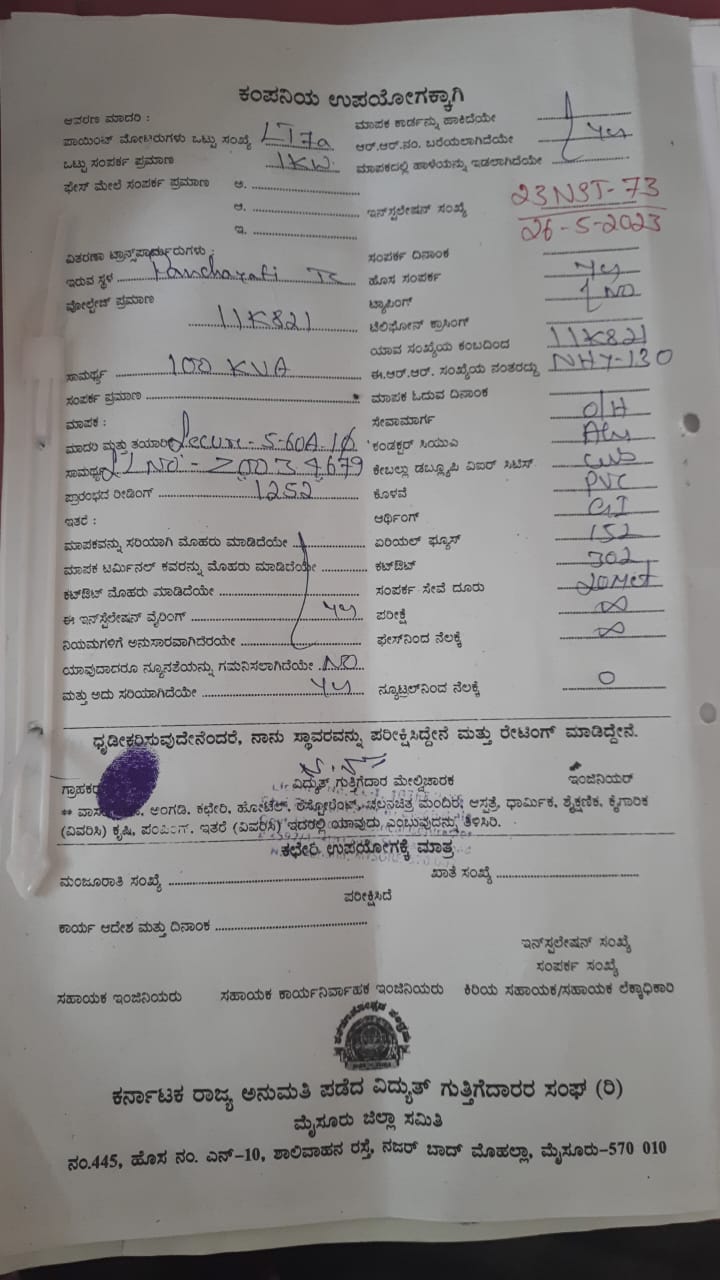 ಕಂಪನಿಯ ಉಪಯೋಗಕ್ಕಾಗಿ
ಆವರಣ ಮಾದರಿ : ಮಾಪಕ ಕಾರ್ಡನ್ನು ಹಾಕಿದೆಯೇ
ಪಾಯಿಂಟ್ ಮೋಟರುಗಳು ಒಟ್ಟು ಸಂಖ್ಯೆ LT7a ಆರ್.ಆರ್.ನಂ. ಬರೆಯಲಾಗಿದೆಯೇ Yes
ಒಟ್ಟು ಸಂಪರ್ಕ ಪ್ರಮಾಣ 1KW. ಮಾಪಕದಲ್ಲಿ ಹಾಳೆಯನ್ನು ಇಡಲಾಗಿದೆಯೇ
ಫೇಸ್ ಮೇಲೆ ಸಂಪರ್ಕ ಪ್ರಮಾಣ ಅ.
ಆ. ಇನ್‌ಸ್ಟಲೇಷನ್ ಸಂಖ್ಯೆ 23NST-73
ಇ. 26-5-2023
ವಿತರಣಾ ಟ್ರಾನ್ಸ್‌ಫಾರ್ಮರುಗಳು : ಸಂಪರ್ಕ ದಿನಾಂಕ
ಇರುವ ಸ್ಥಳ Panchayati TC ಹೊಸ ಸಂಪರ್ಕ Yes
ವೋಲ್ಟೇಜ್ ಪ್ರಮಾಣ 11K821 ಟ್ಯಾಪಿಂಗ್ NO
ಟೆಲಿಫೋನ್ ಕ್ರಾಸಿಂಗ್
ಯಾವ ಸಂಖ್ಯೆಯ ಕಂಬದಿಂದ 11K821
ಸಾಮರ್ಥ್ಯ 100 KVA ಈ.ಆರ್.ಆರ್. ಸಂಖ್ಯೆಯ ನಂತರದ್ದು NHY-130
ಸಂಪರ್ಕ ಪ್ರಮಾಣ ಮಾಪಕ ಓದುವ ದಿನಾಂಕ
ಮಾಪಕ : ಸೇವಾಮಾರ್ಗ O/H
ಮಾದರಿ ಮತ್ತು ತಯಾರಿ Secure-5-60A-1ϕ ಕಂಡಕ್ಟರ್ ಸಿಯುಎ Alu
ಸಾಮರ್ಥ್ಯ SLNO-20034679 ಕೇಬಲ್ಲು ಡಬ್ಲ್ಯೂಪಿ ವಿಐರ್ ಸಿಟಿಸ್
ಪ್ರಾರಂಭದ ರೀಡಿಂಗ್ 1252 ಕೊಳವೆ PVC
ಇತರೆ : ಆರ್ಥಿಂಗ್ GI
ಮಾಪಕವನ್ನು ಸರಿಯಾಗಿ ಮೊಹರು ಮಾಡಿದೆಯೇ ಏರಿಯಲ್ ಫ್ಯೂಸ್ 152
ಮಾಪಕ ಟರ್ಮಿನಲ್ ಕವರನ್ನು ಮೊಹರು ಮಾಡಿದೆಯೇ ಕಟ್‌ಔಟ್ 302
ಕಟ್‌ಔಟ್ ಮೊಹರು ಮಾಡಿದೆಯೇ ಸಂಪರ್ಕ ಸೇವೆ ದೂರು 20Met
ಈ ಇನ್‌ಸ್ಟಲೇಷನ್ ವೈರಿಂಗ್ Yes ಪರೀಕ್ಷೆ ∞
ನಿಯಮಗಳಿಗೆ ಅನುಸಾರವಾಗಿದೆರಯೇ ಫೇಸ್‌ನಿಂದ ನೆಲಕ್ಕೆ ∞
ಯಾವುದಾದರೂ ನ್ಯೂನತೆಯನ್ನು ಗಮನಿಸಲಾಗಿದೆಯೇ NO
ಮತ್ತು ಅದು ಸರಿಯಾಗಿದೆಯೇ Yes ನ್ಯೂಟ್ರಲ್‌ನಿಂದ ನೆಲಕ್ಕೆ 0
ಧೃಡೀಕರಿಸುವುದೇನೆಂದರೆ, ನಾನು ಸ್ಥಾವರವನ್ನು ಪರೀಕ್ಷಿಸಿದ್ದೇನೆ ಮತ್ತು ರೇಟಿಂಗ್ ಮಾಡಿದ್ದೇನೆ.
ವಿದ್ಯುತ್ ಗುತ್ತಿಗೆದಾರ ಮೇಲ್ವಿಚಾರಕ ಇಂಜಿನಿಯರ್
** ಅಂಗಡಿ, ಕಛೇರಿ, ಹೋಟೆಲ್, ರೆಸ್ಟೋರೆಂಟ್, ಚಲನಚಿತ್ರ ಮಂದಿರ, ಆಸ್ಪತ್ರೆ, ಧಾರ್ಮಿಕ, ಶೈಕ್ಷಣಿಕ, ಕೈಗಾರಿಕ
(ವಿವರಿಸಿ) ಕೃಷಿ, ಪಂಪಿಂಗ್, ಇತರೆ (ವಿವರಿಸಿ) ಇದರಲ್ಲಿ ಯಾವುದು ಎಂಬುವುದನ್ನು ತಿಳಿಸಿರಿ.
ಕಛೇರಿ ಉಪಯೋಗಕ್ಕೆ ಮಾತ್ರ
ಮಂಜೂರಾತಿ ಸಂಖ್ಯೆ ಖಾತೆ ಸಂಖ್ಯೆ
ಪರೀಕ್ಷಿಸಿದೆ
ಕಾರ್ಯ ಆದೇಶ ಮತ್ತು ದಿನಾಂಕ
ಇನ್‌ಸ್ಟಲೇಷನ್ ಸಂಖ್ಯೆ
ಸಂಪರ್ಕ ಸಂಖ್ಯೆ
ಸಹಾಯಕ ಇಂಜಿನಿಯರು ಸಹಾಯಕ ಕಾರ್ಯನಿರ್ವಾಹಕ ಇಂಜಿನಿಯರು ಕಿರಿಯ ಸಹಾಯಕ/ಸಹಾಯಕ ಲೆಕ್ಕಾಧಿಕಾರಿ
ಕರ್ನಾಟಕ ರಾಜ್ಯ ಅನುಮತಿ ಪಡೆದ ವಿದ್ಯುತ್ ಗುತ್ತಿಗೆದಾರರ ಸಂಘ (ರಿ)
ಮೈಸೂರು ಜಿಲ್ಲಾ ಸಮಿತಿ
ನಂ.445, ಹೊಸ ನಂ. ಎನ್-10, ಶಾಲಿವಾಹನ ರಸ್ತೆ, ನಜರ್ ಬಾದ್ ಮೊಹಲ್ಲಾ, ಮೈಸೂರು-570 010